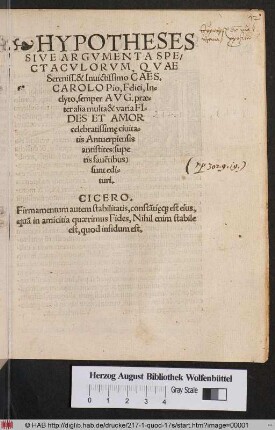 HYPOTHESES
SIVE ARGVMENTA SPE-
CTACVLORVM, QVAE
Sereniss. & Inuictissimo CAES.
CAROLO Pio, Felici, In-
clyto, semper AVG. præ-
ter alia multa & varia FI-
DES ET AMOR
celebratissimę ciuita-
tis Antuerpiensis
antistites (supe-
ris fauētibus)
sunt edi-
turi.
CICERO.
Firmamentum autem stabilitatis, constātięq; est eius,
quā in amicitia quærimus Fides, Nihil enim stabile
est, quod infidum est.
Herzog August Bibliothek Wolfenbüttel
Gray Scale
© HAB http://diglib.hab.de/drucke/217-1-quod-17s/start.htm?image=00001